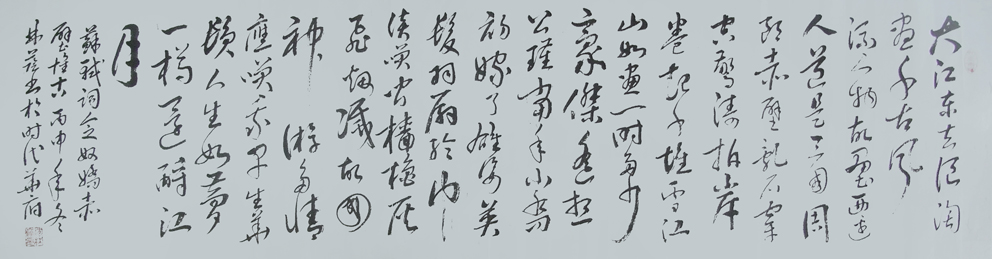 大江东去浪淘
盡千古风
流人物故壘西边
人道是三国周
郎赤壁亂石穿
空驚涛拍岸
卷起千堆雪江
山如畫一时多少
豪傑遥想
公瑾當年小喬
初嫁了雄姿英
髮羽扇纶巾
谈笑间樯橹灰
飛烟滅故國
神游多情
應笑我早生華
髮人生如夢
一樽還酹江
月
蘇軾词念奴嬌赤
壁怀古丙申年冬
林书於时代華府